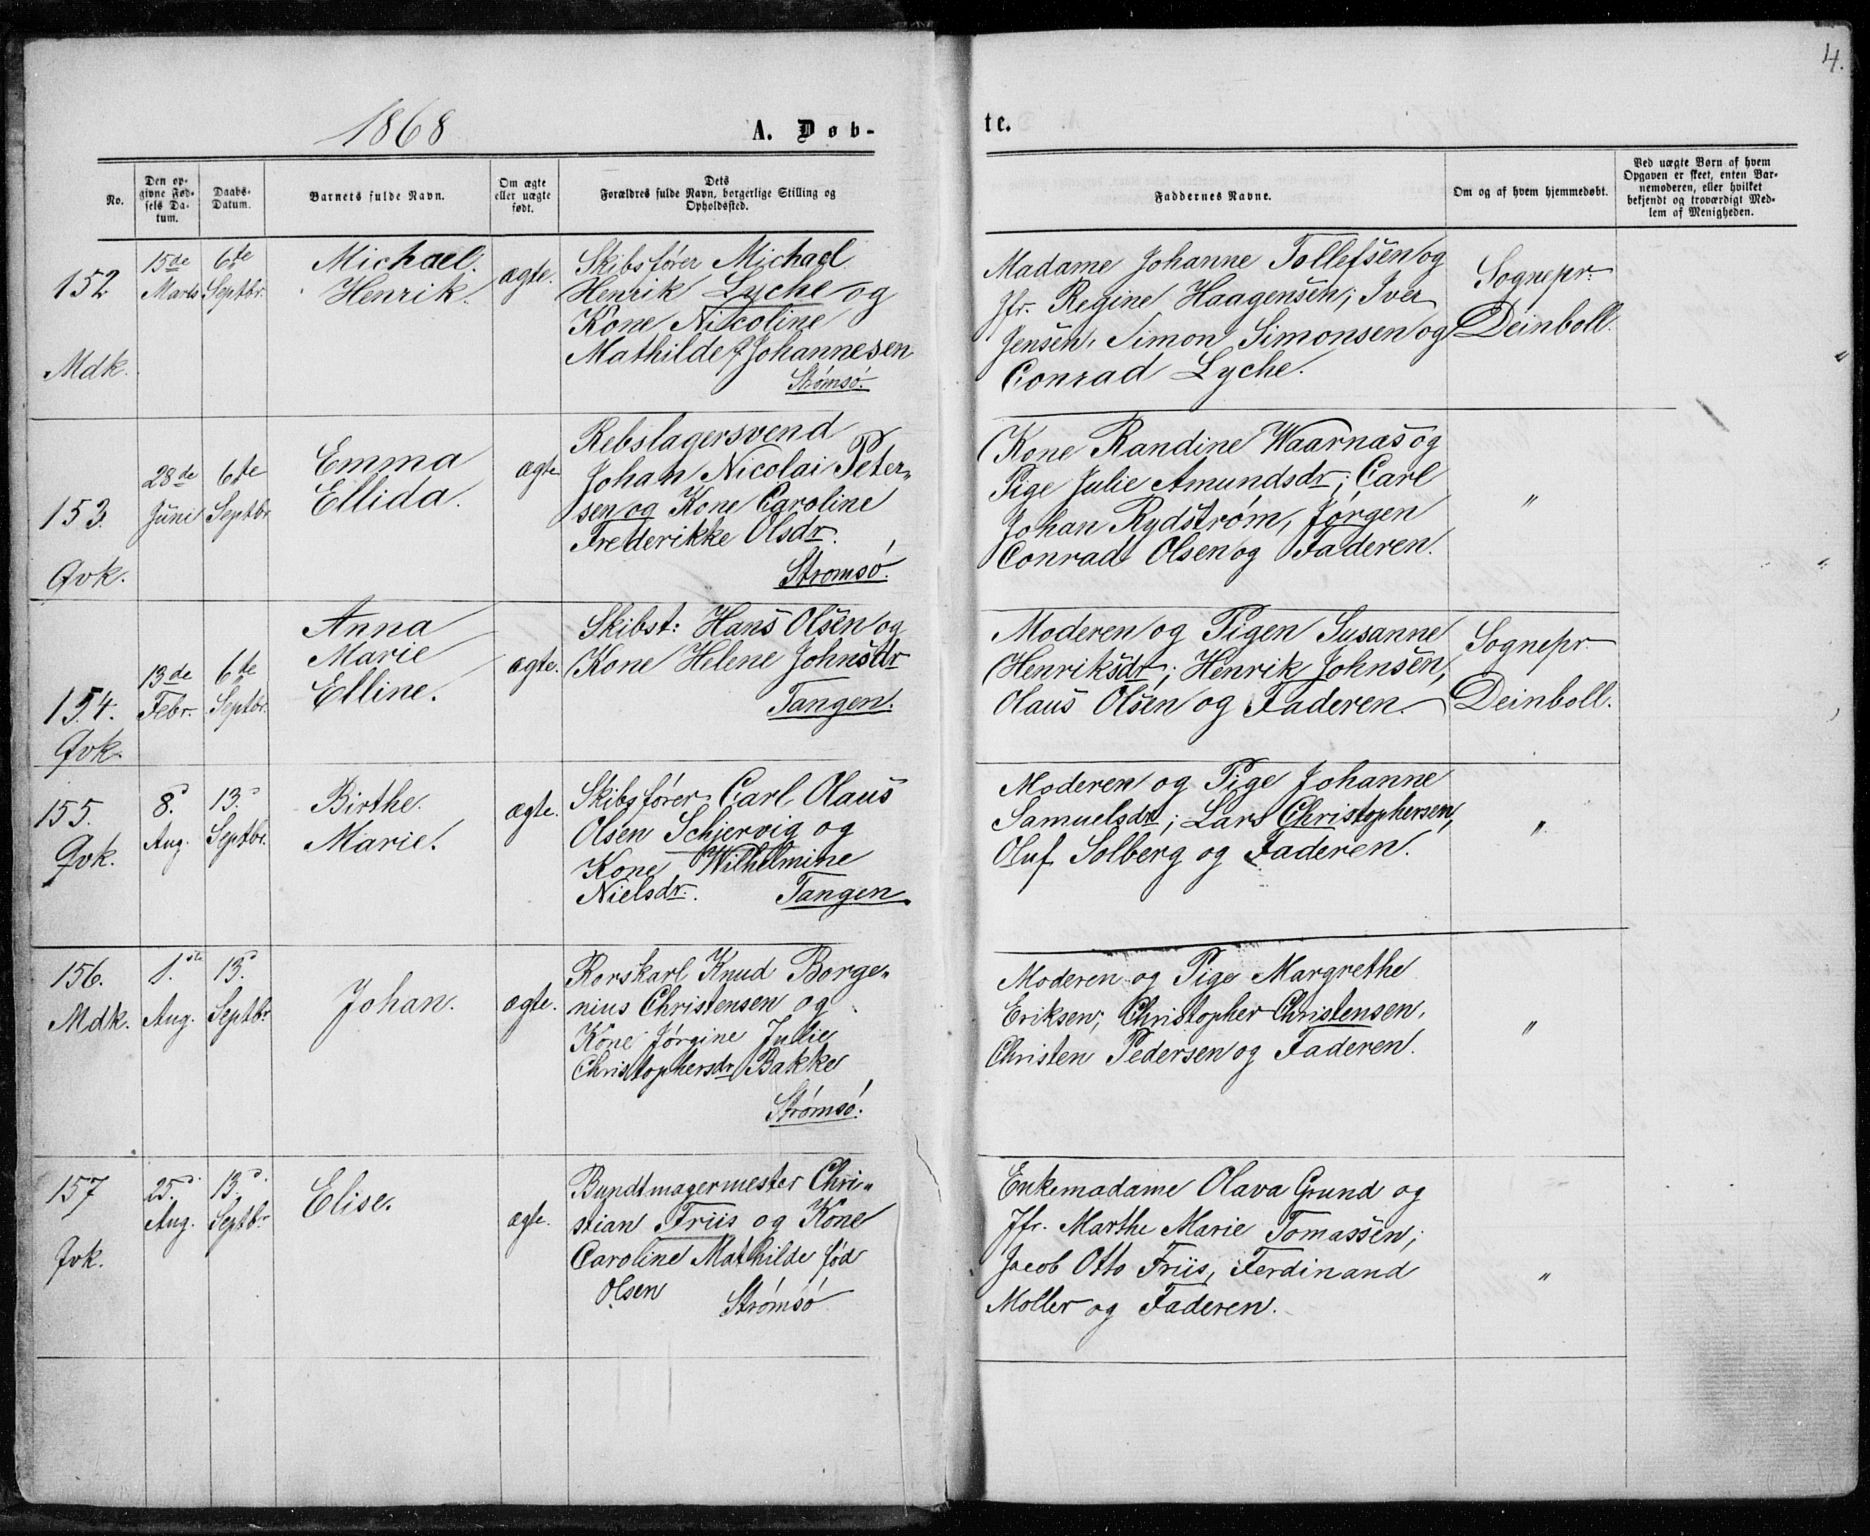 4.
1868 A. Døb-te.
No.
Den op-
givne Fød-
sels Da-
tum.
Daabs-
Datum.
Barnets fulde Navn.
Om ægte
eller uægte
født.
Dets
Forældres fulde Navn, borgerlige Stilling og
Opholdssted.
Faddernes Navne.
Om og af hvem hjemmedøbt.
Ved uægte Børn af hvem
Opgaven er skeet, enten Bar-
nemoderen, eller hvilket
bekjendt og troværdigt Med-
lem af Menigheden.
152
Mdk.
15de
Marts
6te
Septbr.
Michael
Henrik.
ægte.
Skibsfører Michael
Henrik Lyche og
Kone Nicoline
Mathilde Johannesen
Strømsø.
Madame Johanne Tollefsen og
Jfr. Regine Haagensen; Iver
Jensen, Simon Simonsen og
Conrad Lyche.
Sognepr.
Deinboll.
153.
Qvk.
28de
Juni
6te
Septbr.
Emma
Ellida.
ægte
Rebslagersvend
Johan Nicolai Peter„
sen og Kone Caroline
Frederikke Olsdr.
Strømsø.
Kone Randine Waarnas og
Pige Julie Amundsdr; Carl
Johan Rydstrøm, Jørgen
Conrad Olsen og Faderen.
„
154.
Qvk.
13de
Febr.
6te
Septbr.
Anna
Marie
Elline.
ægte.
Skibst: Hans Olsen og
Kone Helene Johnsdr
Tangen.
Moderen og Pigen Susanne
Henriksdr; Henrik Johnsen,
Olaus Olsen og Faderen.
Sognepr.
Deinboll.
155.
Qvk.
8.
Aug.
13.
Septbr.
Birthe
Marie.
ægte.
Skibsfører Carl Olaus
Olsen Schjervig og
Kone Wilhelmine
Nielsdr. Tangen.
Moderen og Pige Johanne
Samuelsdr; Lars Christophersen,
Oluf Solberg og Faderen.
„
156.
Mdk.
1.ste
Aug.
13.
Septbr
Johan.
ægte.
Rorskarl Knud Borge„
nius Christensen og
Kone Jørgine Julie
Christophersdr Bakke
Strømsø.
Moderen og Pige Margrethe
Eriksen; Christopher Christensen,
Christen Pedersen og Faderen.
„
157
Qvk.
25.
Aug.
13.
Septbr.
Elise.
ægte.
Bundtmagermester Chri„
stian Friis og Kone
Caroline Mathilde fød
Olsen Strømsø
Enkemadame Olava Grund og
Jfr. Marthe Marie Tomassen;
Jacob Otto Friis, Ferdinand
Møller og Faderen.
„